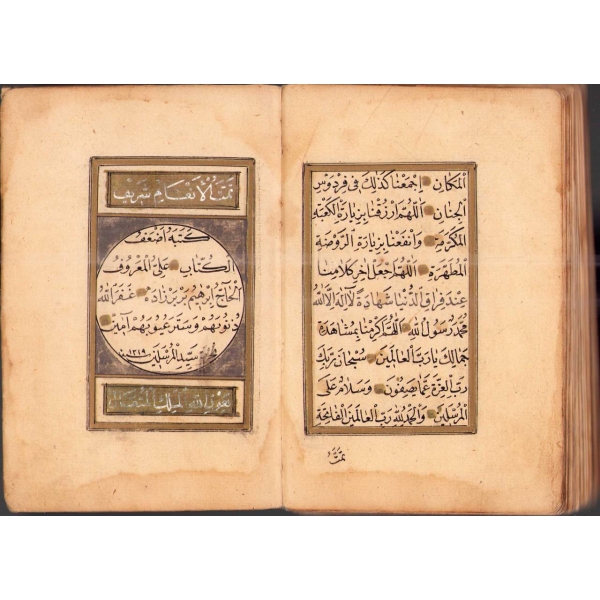 المكان إجمعنا كذلك في فردوس
الجنان اللهم ارزقنا بزيارة الكعبة
المكرمة وانفعنا بزيارة الروضة
المطهرة اللهم اجعل اخر كلامنا
عند فراق الدنيا شهادة لا اله الا الله
محمد رسول الله اللهم اكرمنا بمشاهدة
جمالك يا رب العالمين سبحان ربك
رب العزة عما يصفون وسلام على
المرسلين والحمد لله رب العالمين الفاتحة
تمت
تمت الانعام شريف
كتبه اضعف
الكتاب على المعروف
الحاج ابرهيم بربر زاده غفر الله
ذنوبهم وستر عيوبهم آمين
بحرمة سيد المرسلين ١٢١٩
بعون الله الملك